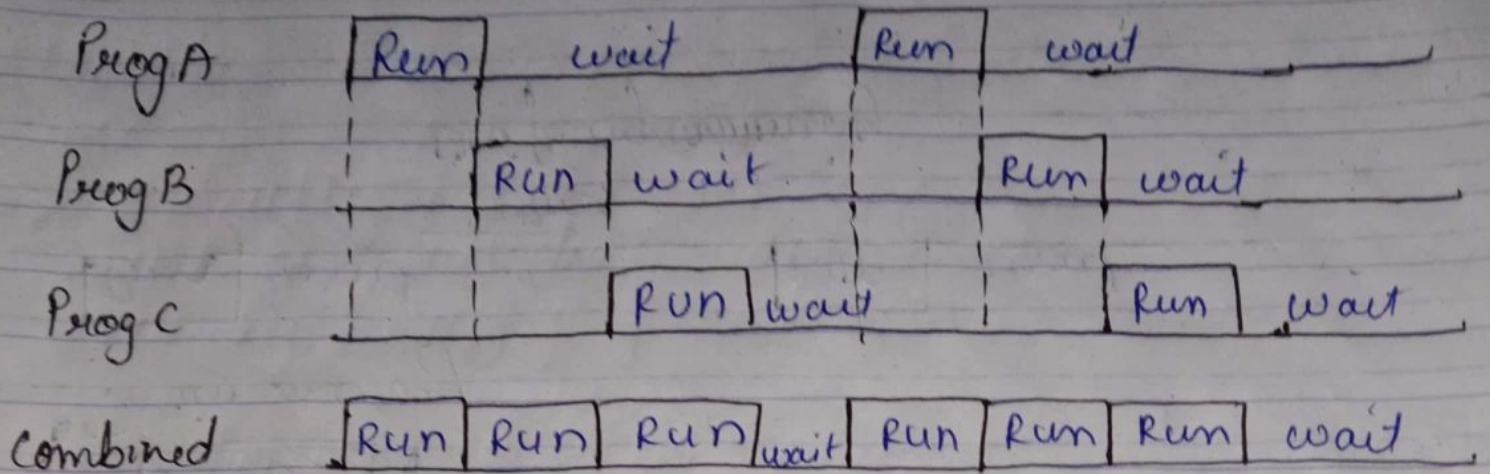 Prog A Run wait Run wait
Prog B Run wait Run wait
Prog C Run wait Run wait
Combined Run Run Run wait Run Run Run wait